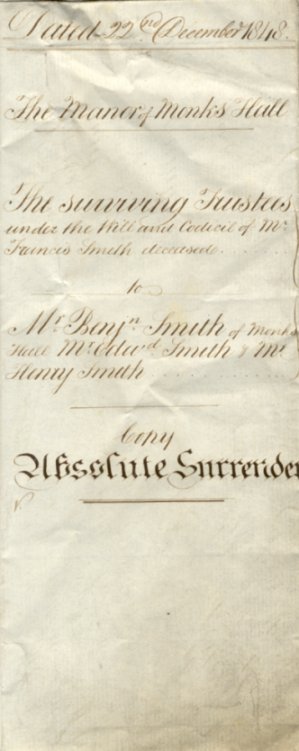 Dated 22nd December 1848.
The Manor of Monks Hall
The surviving Trustees
under the Will and Codicil of Mr
Francis Smith deceased
to
Mr Benjn Smith of Monks
Hall Mr Edwd Smith & Mr
Henry Smith
Copy
Absolute Surrender